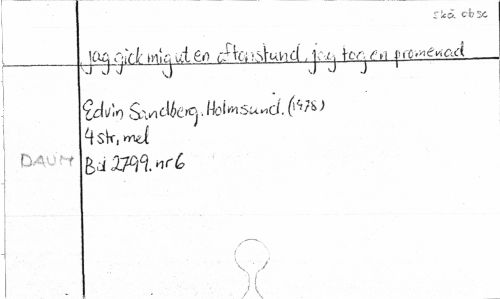 skä obsc
jag gick mig ut en aftonstund, jag tog en promenad
Edvin Sandberg. Holmsund. (1978)
4 str, mel
DAUM Bd 2799. nr 6